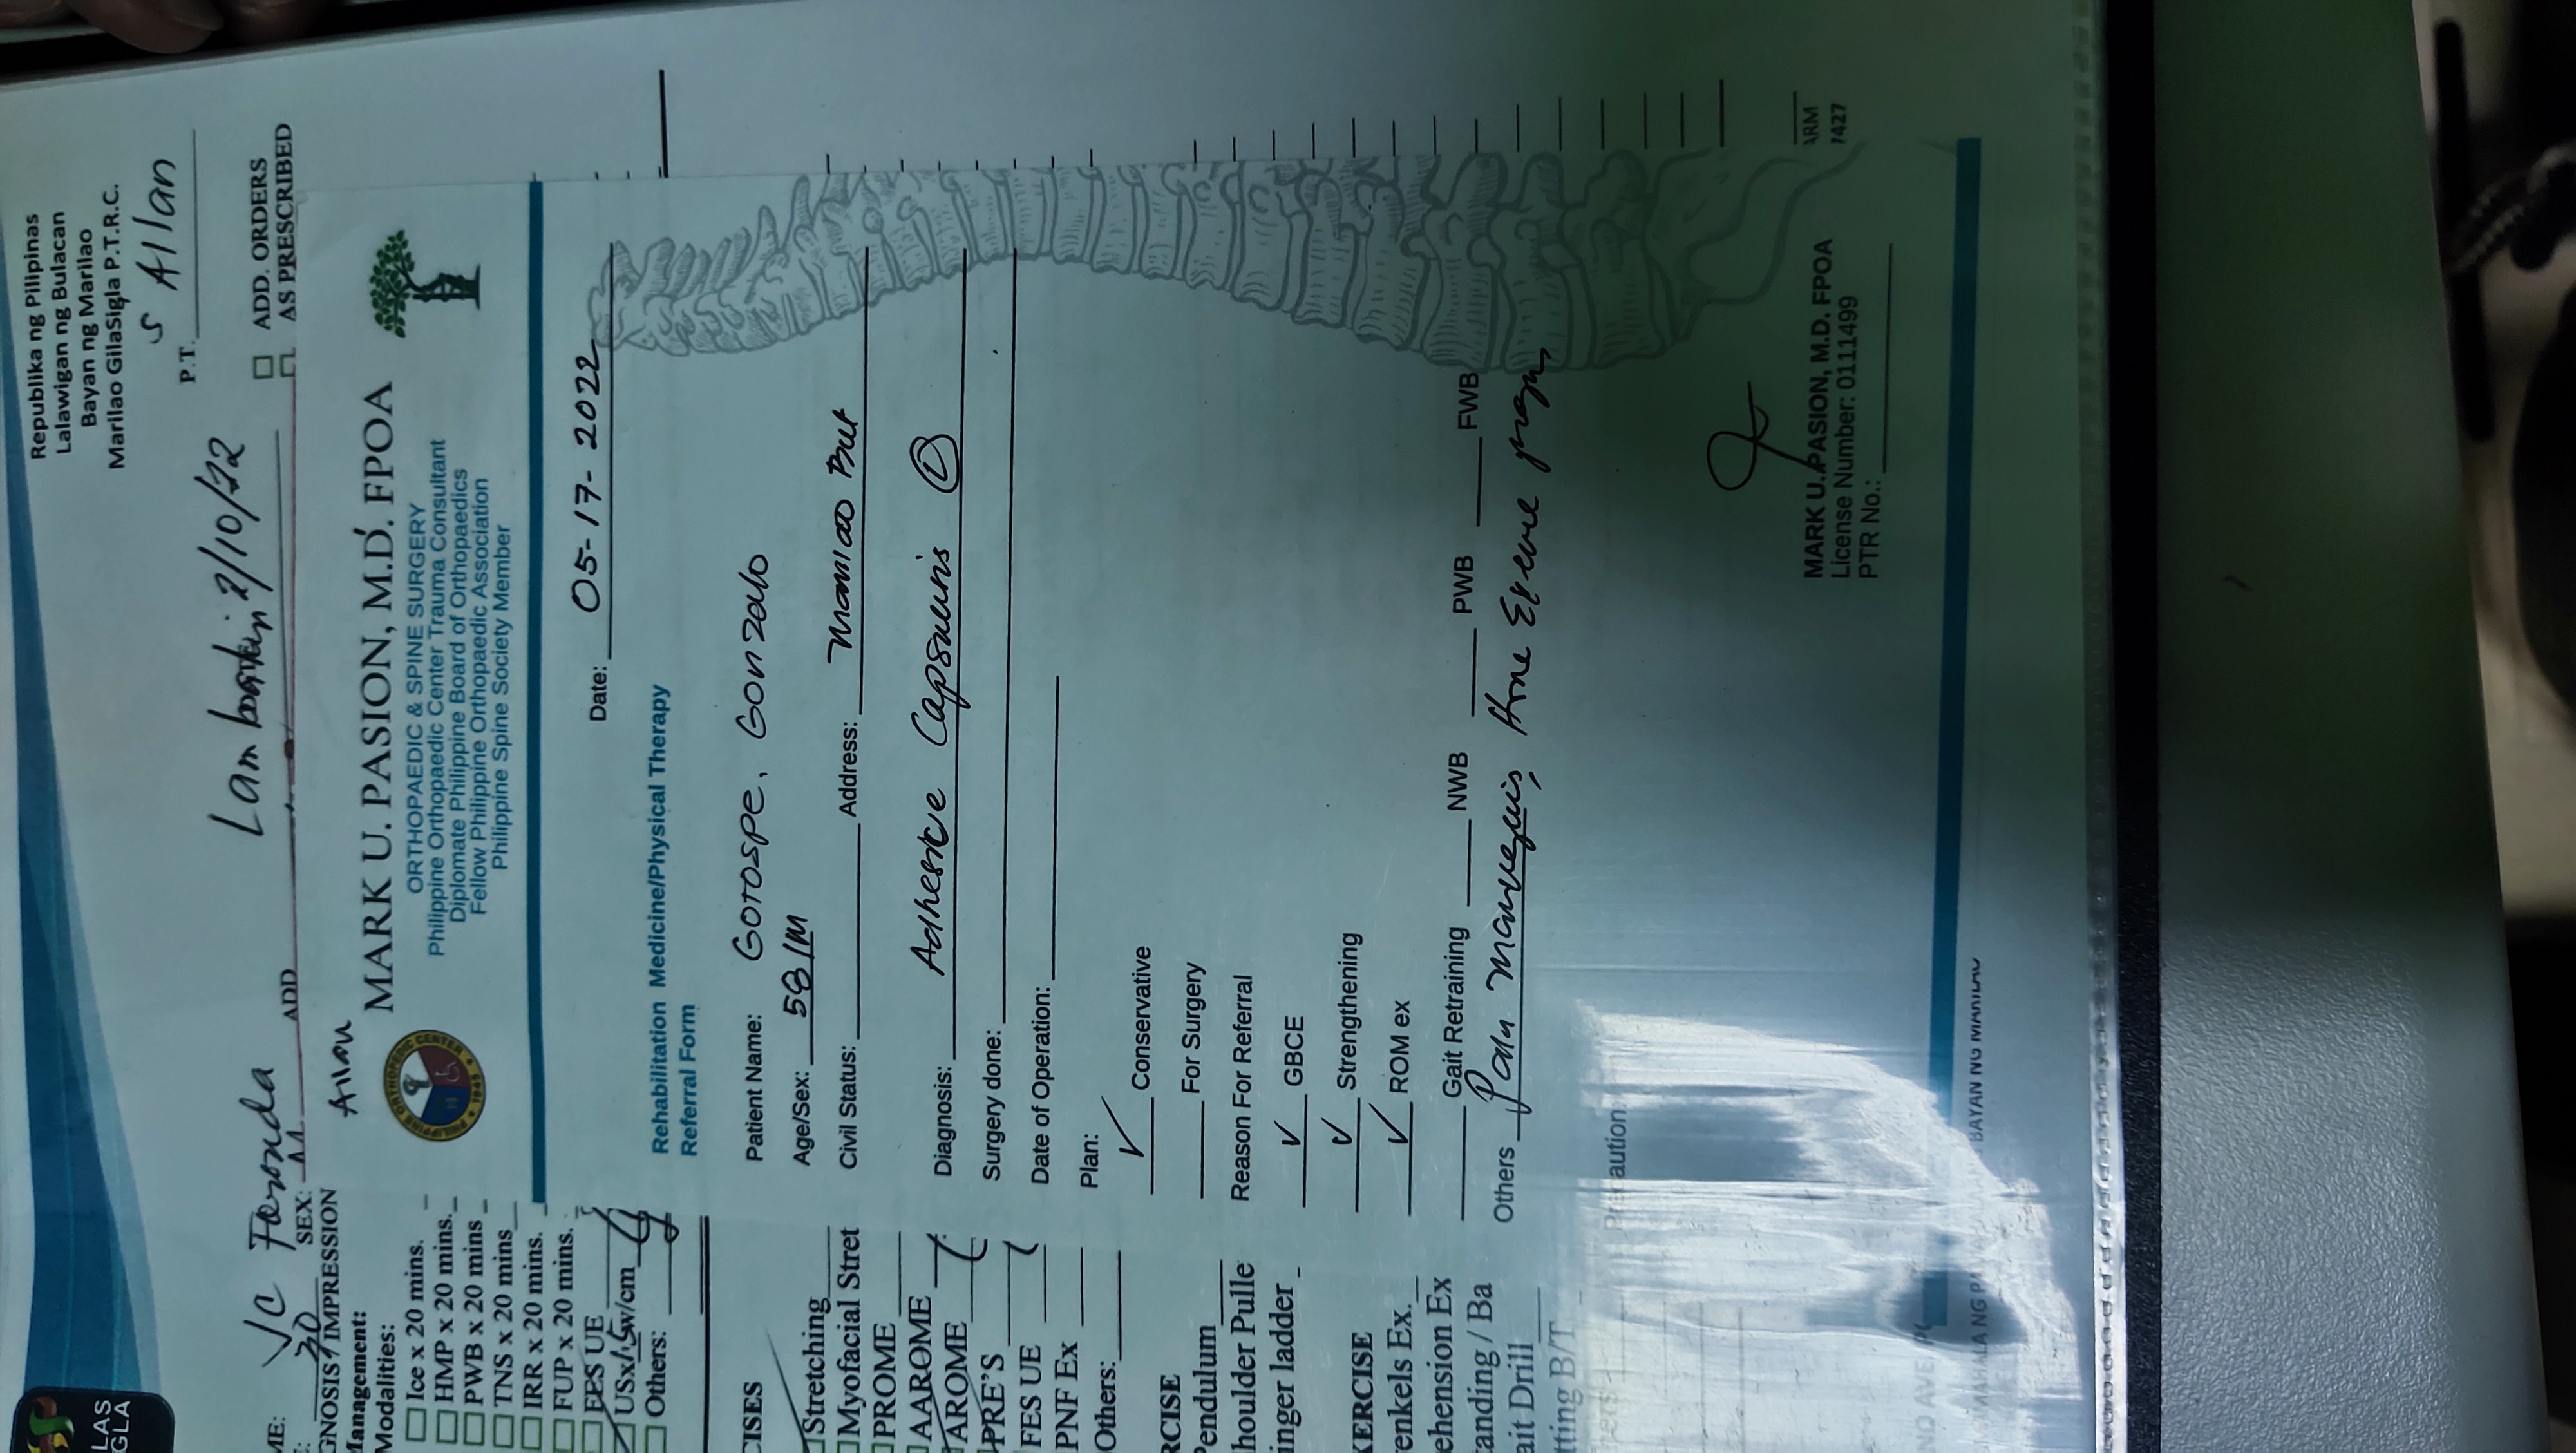 LAS
GLA
Republika ng Pilipinas
Lalawigan ng Bulacan
Bayan ng Marilao
Marilao GilaSigla P.T.R.C.
P.T. S Allan
ME: JC Faronda
ADD Lambakin 2/10/22
ADD. ORDERS
AS PRESCRIBED
E: 30 SEX: M
GNOSIS / IMPRESSION
Management:
Modalities:
Ice x 20 mins.
HMP x 20 mins.
PWB x 20 mins
TNS x 20 mins
IRR x 20 mins.
FUP x 20 mins.
FES UE
USx1.5w/cm
Others:
CISES
Stretching
Myofacial Stret
PROME
AAROME
AROME
PRE'S
FES UE
PNF Ex
Others:
RCISE
Pendulum
houlder Pulle
inger ladder
XERCISE
enkels Ex.
ehension Ex
tanding / Ba
ait Drill
tting B/T
hers
Allan
MARK U. PASION, M.D. FPOA
ORTHOPAEDIC & SPINE SURGERY
Philippine Orthopaedic Center Trauma Consultant
Diplomate Philippine Board of Orthopaedics
Fellow Philippine Orthopaedic Association
Philippine Spine Society Member
PHILIPPINE ORTHOPEDIC CENTER
1945
Date: 05-17-2022
Rehabilitation Medicine/Physical Therapy
Referral Form
Patient Name: Gorospe, Gonzalo
Age/Sex: 58/M
Civil Status: Address: Marilao Bul
Diagnosis: Adhesive Capsulitis
Surgery done:
Date of Operation:
Plan:
✓ Conservative
For Surgery
Reason For Referral
✓ GBCE
✓ Strengthening
✓ ROM ex
Gait Retraining NWB PWB FWB
Others Pain Home Exercise program
Precaution:
MARK U. PASION, M.D. FPOA
License Number: 0111499
PTR No.:
ARM
7427
NO AVE. P
MAHALA NG PAMAHALAANG BAYAN NG MARILAO